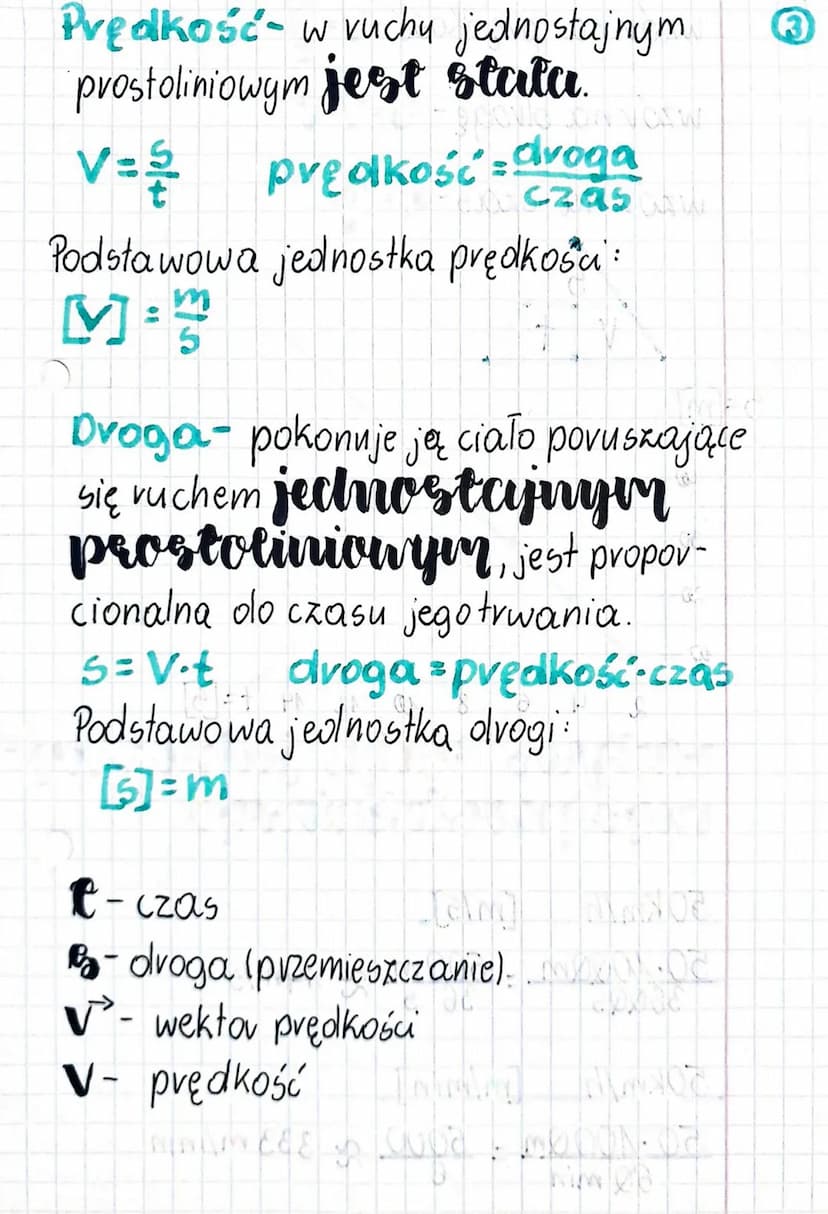 Prędkość- w ruchu jednostajnym
3
prostoliniowym jest stała.
V=s/t prędkość=droga/czas
Podstawowa jednostka prędkości:
[V]=m/s
Droga- pokonuje ją ciało poruszające
się ruchem jednostajnym
prostoliniowym, jest propor-
cjonalna do czasu jego trwania.
s=V·t droga=prędkość·czas
Podstawowa jednostka drogi:
[s]=m
t - czas
s - droga (przemieszczanie)
V→ - wektor prędkości
V - prędkość